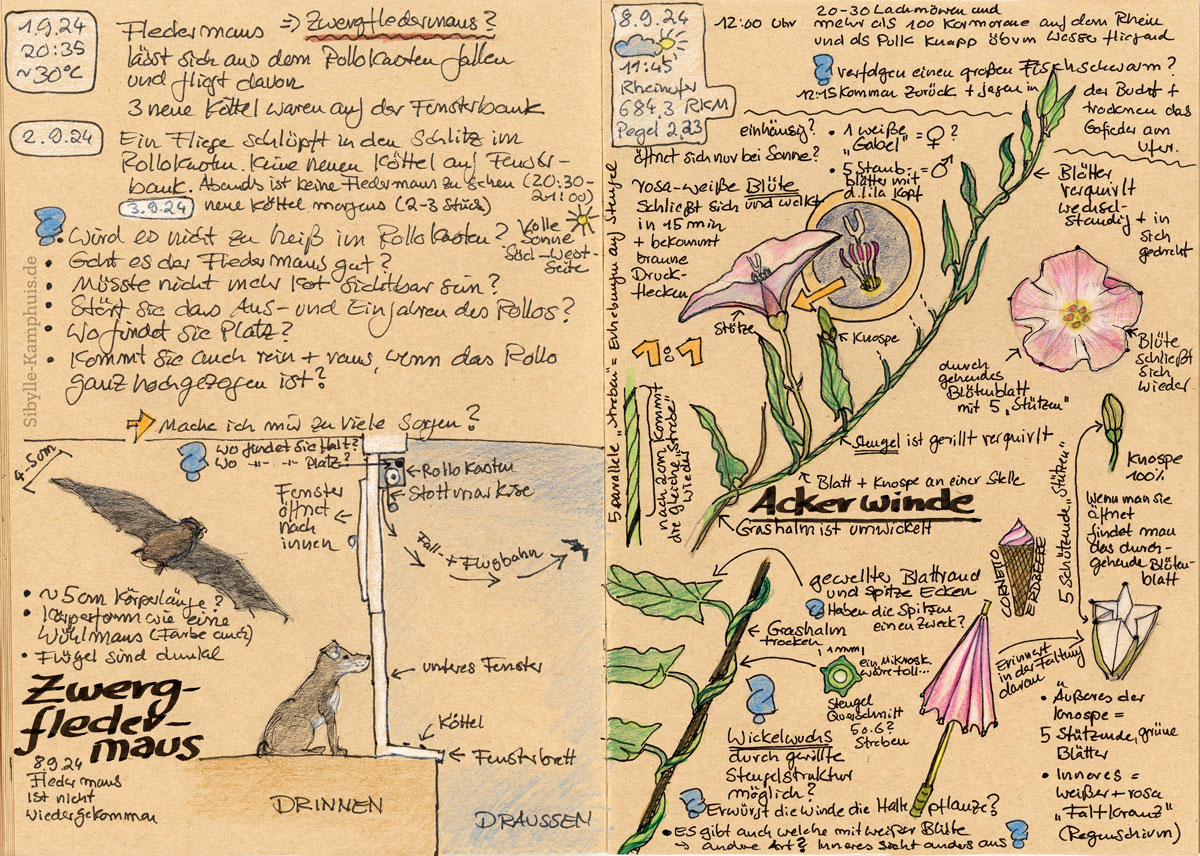 1.9.24
20:35
~30°C
Fledermaus => Zwergfledermaus?
lässt sich aus dem Rollokasten fallen
und fliegt davon
3 neue Köttel waren auf der Fensterbank
2.9.24
Ein Fliege schlüpft in den Schlitz im
Rollokasten. Keine neuen Köttel auf Fenster-
bank. Abends ist keine Fledermaus zu sehen (20:30-
21:00)
3.9.24 neue Köttel morgens (2-3 Stück)
? • Wird es nicht zu heiß im Rollokasten?
Volle
Sonne
Süd-West-
Seite
• Geht es der Fledermaus gut?
• Müsste nicht mehr Kot sichtbar sein?
• Stört sie das Aus- und Einfahren des Rollos?
• Wo findet sie Platz?
• Kommt sie auch rein + raus, wenn das Rollo
ganz hochgezogen ist?
Mache ich mir zu viele Sorgen?
Sibylle-Kamphuis.de
4-5cm
? Wo findet sie Halt?
Wo -"- -"- Platz?
Rollokasten
Stoffmarkise
Fenster
öffnet
nach
innen
Fall- + Flugbahn
• ~5cm Körperlänge?
• Körperform wie eine
Wühlmaus (Farbe auch)
• Flügel sind dunkel
Zwerg-
fleder-
maus
8.9.24
Fledermaus
ist nicht
wiedergekommen
unteres Fenster
Köttel
Fensterbrett
DRINNEN
DRAUSSEN
8.9.24
11:45
Rheinufer
684,3 RKM
Pegel 2,23
12:00 Uhr
20-30 Lachmöwen und
mehr als 100 Kormorane auf dem Rhein
und als Pulk knapp überm Wasser fliegend
? verfolgen einen großen Fischschwarm?
12:15 kommen zurück + jagen in
der Bucht +
trocknen das
Gefieder am
Ufer.
einhäusig?
öffnet sich nur bei Sonne?
• 1 weiße = ♀ ?
"Gabel"
• 5 Staub- = ♂
blätter mit
d. lila Kopf
rosa-weiße Blüte
schließt sich und welkt
in 15 min
+ bekommt
braune
Druck-
flecken
Stütze
Knospe
Blätter
verquirlt
wechsel-
ständig + in
sich
gedreht
durch
gehendes
Blütenblatt
mit 5 "Stützen"
Blüte
schließt
sich
wieder
1:1
5 parallele "Streben" = Erhebungen auf Stengel
nach 2cm kommt
die gleiche "Strebe"
wieder
Stengel ist gerillt verquirlt
Blatt + Knospe an einer Stelle
Ackerwinde
Grashalm ist umwickelt
Knospe
100%
Wenn man sie
öffnet
findet man
das durch-
gehende Blüten-
blatt
5 schützende "Stützen"
CORNETTO
ERDBEERE
gewellter Blattrand
und spitze Ecken
? Haben die Spitzen
einen Zweck?
Grashalm
trocken
1mm
ein Mikrosk.
wäre toll...
Stengel
Querschnitt
5 o. 6?
Streben
Erinnert
in der Faltung
daran
? Wickelwuchs
durch gerillte
Stengelstruktur
möglich?
? Erwürgt die Winde die Haltepflanze?
• Es gibt auch welche mit weißer Blüte
→ andere Art? Inneres sieht anders aus ?
• Äußeres der
Knospe =
5 Stützende, grüne
Blätter
• Inneres =
weißer + rosa
"Faltkranz"
(Regenschirm)